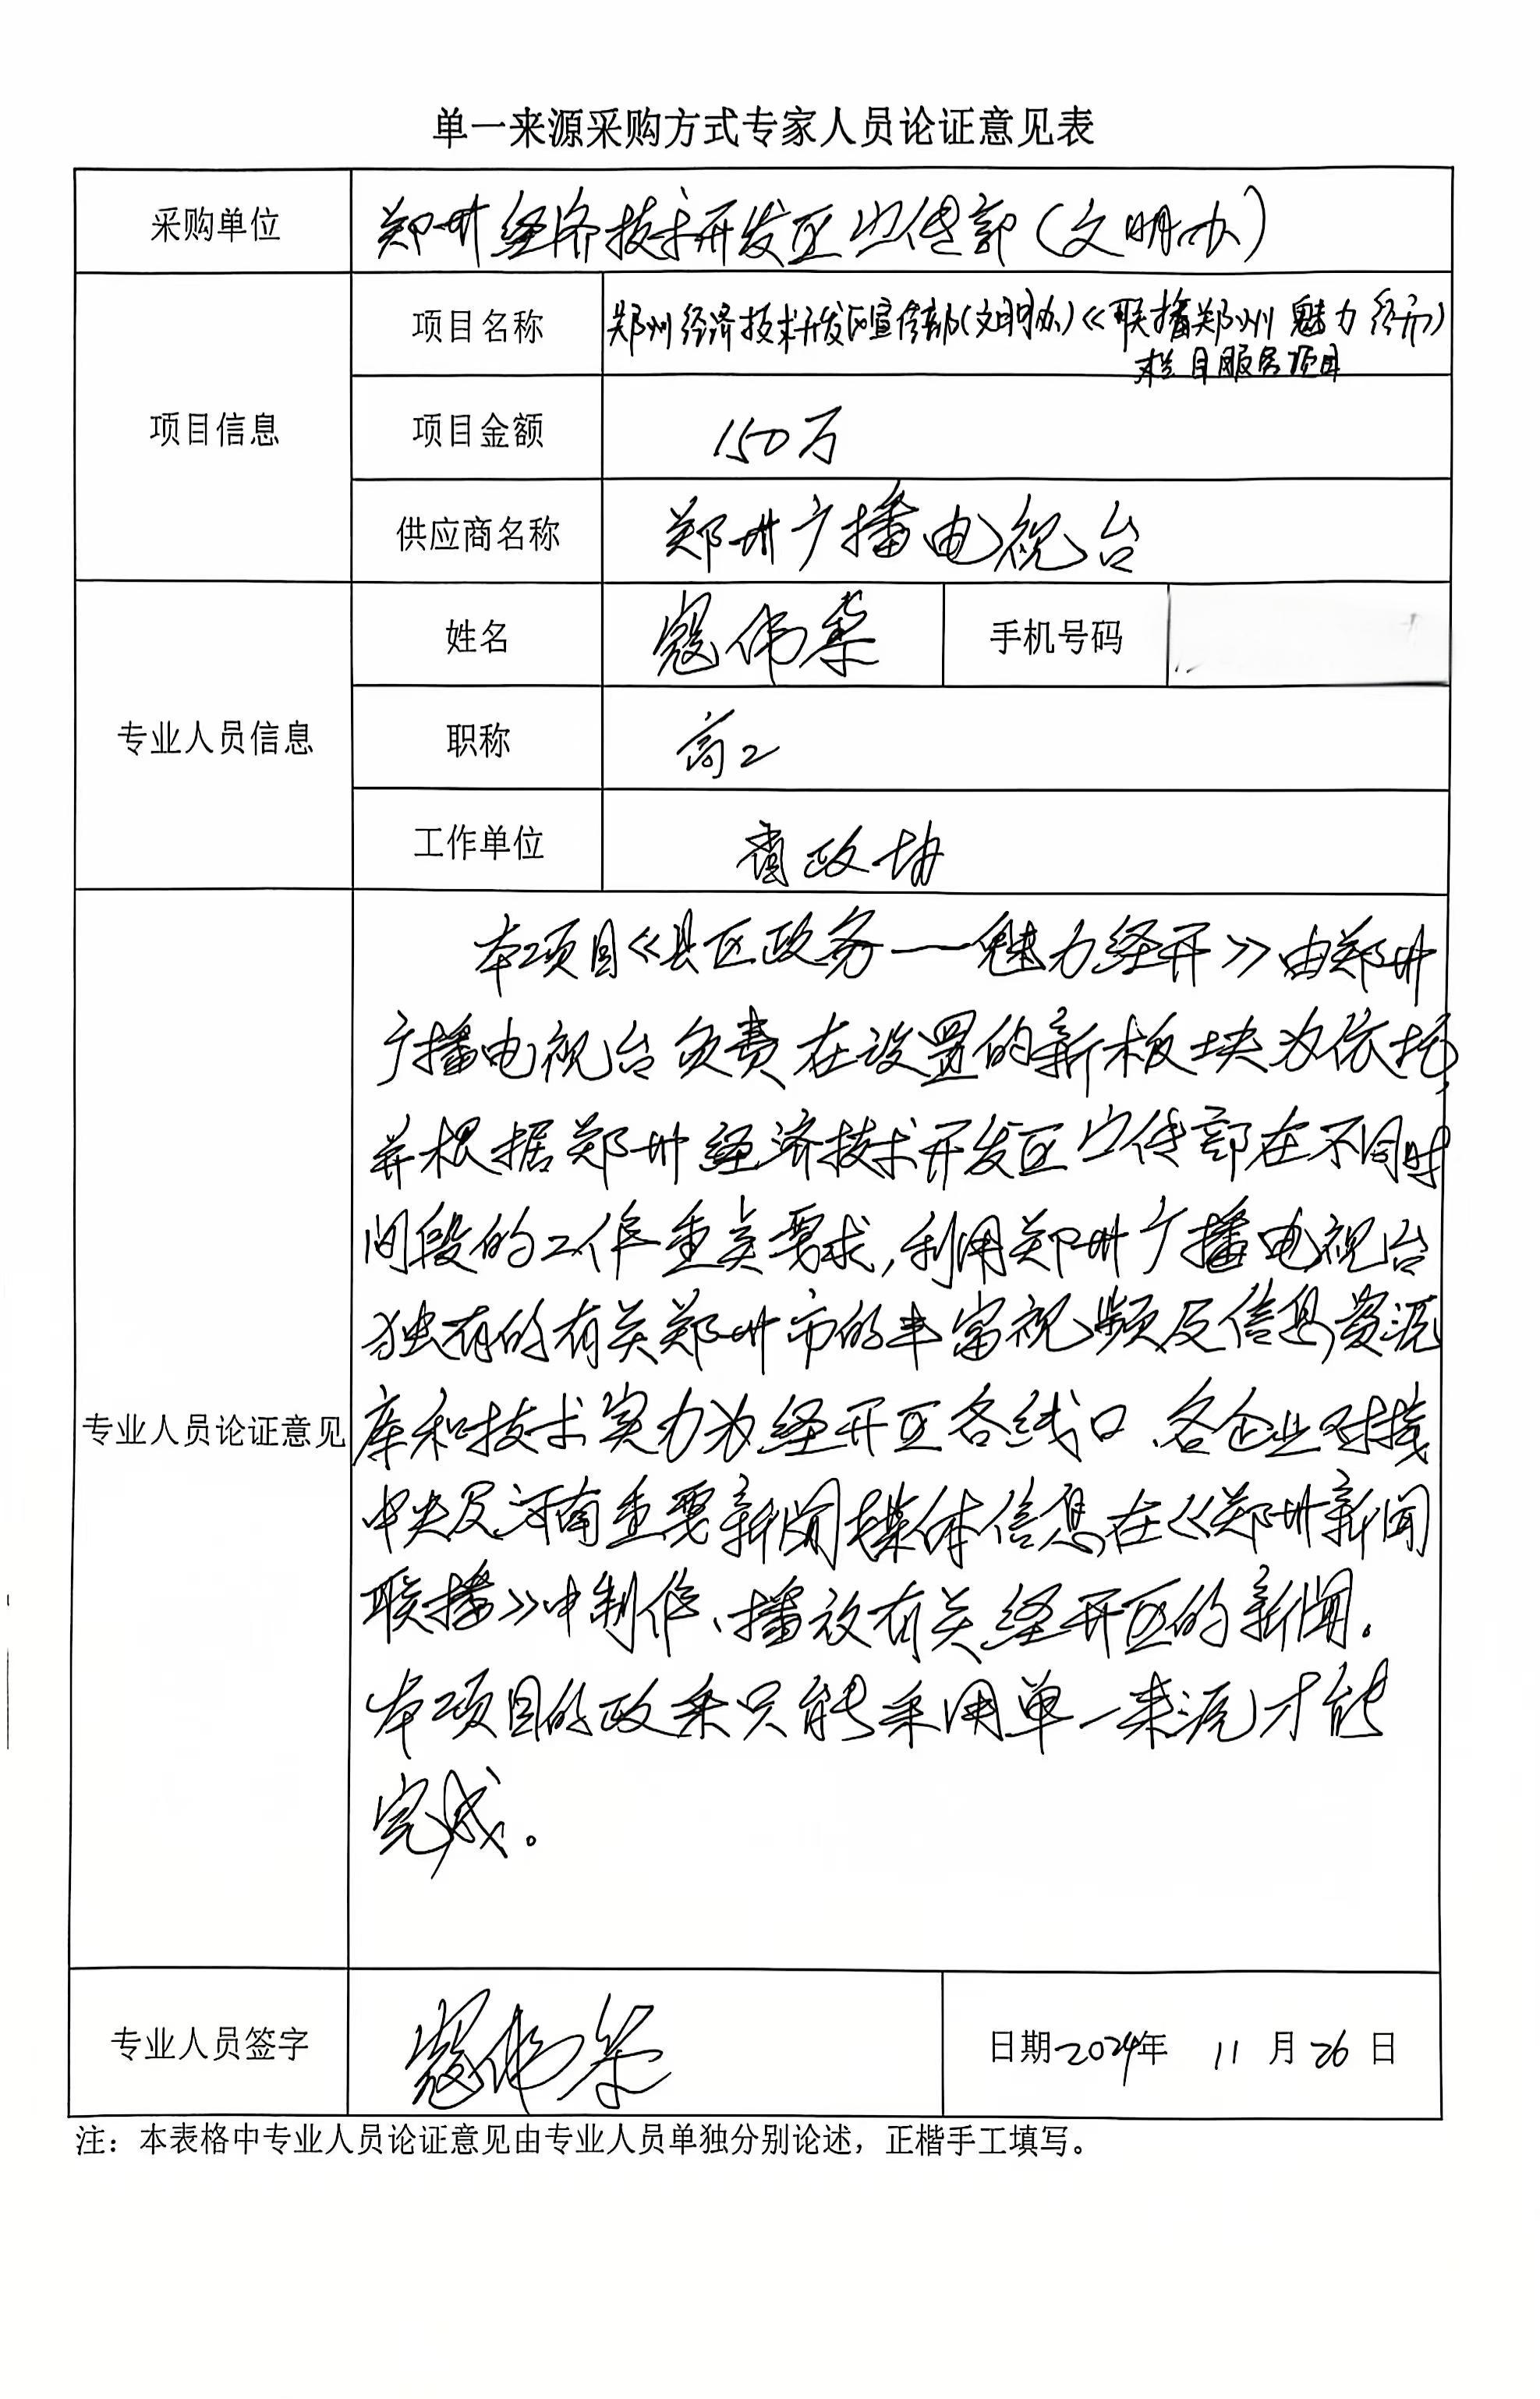 单一来源采购方式专家人员论证意见表
采购单位
郑州经济技术开发区宣传部(文明办)
项目信息
项目名称
郑州经济技术开发区宣传部(文明办)《联播郑州 魅力经开》
栏目服务项目
项目金额
150万
供应商名称
郑州广播电视台
专业人员信息
姓名
寇伟
手机号码
职称
高工
工作单位
省政协
专业人员论证意见
本项目《县区政务——魅力经开》由郑州
广播电视台负责在设置的新板块为依托,
并根据郑州经济技术开发区宣传部在不同时
间段的工作重点要求,利用郑州广播电视台
独有的有关郑州市的丰富视频及信息资源
库和技术实力为经开区各线口、各企业对接
中央及河南重要新闻媒体信息在《郑州新闻
联播》中制作、播放有关经开区的新闻。
本项目的政采只能采用单一来源才能
完成。
专业人员签字
寇伟
日期2024年 11 月 26 日
注：本表格中专业人员论证意见由专业人员单独分别论述，正楷手工填写。